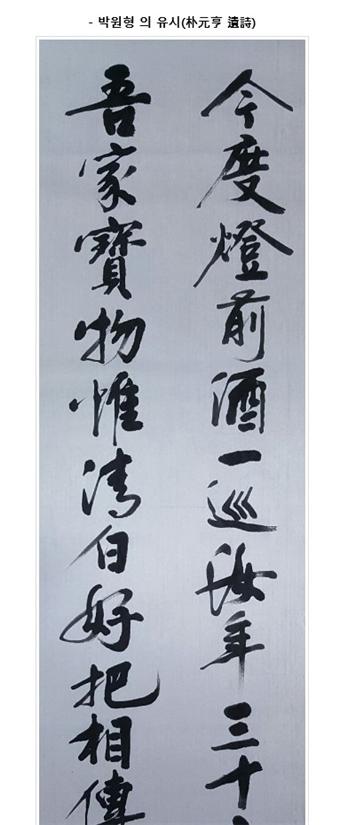 - 박원형 의 유시(朴元亨 遺詩)
今度燈前酒一巡汝年三十
吾家寶物惟清白好把相傳